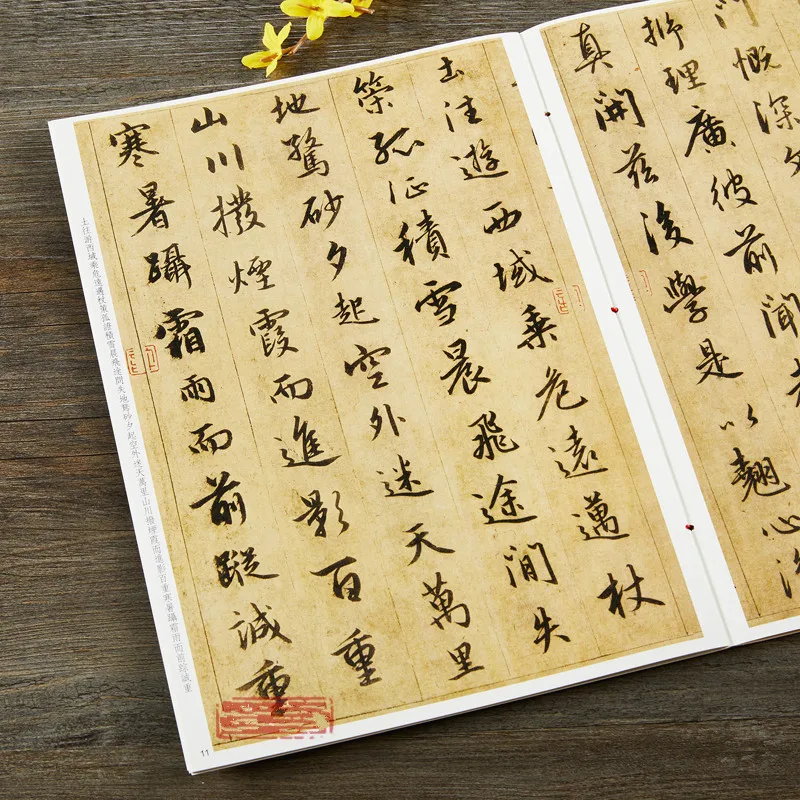 慨深文
理廣彼前聞
真開茲後學是以翹心
土往遊西域乘危遠邁杖
策孤征積雪晨飛途間失
地驚砂夕起空外迷天萬里
山川撥煙霞而進影百重
寒暑躡霜雨而前蹤誠重
土往游西域乘危遠邁杖策孤證積雪晨飛途間失地驚砂夕起空外迷天萬里山川撥煙霞而進影百重寒暑躡霜雨而前踪誠重
11